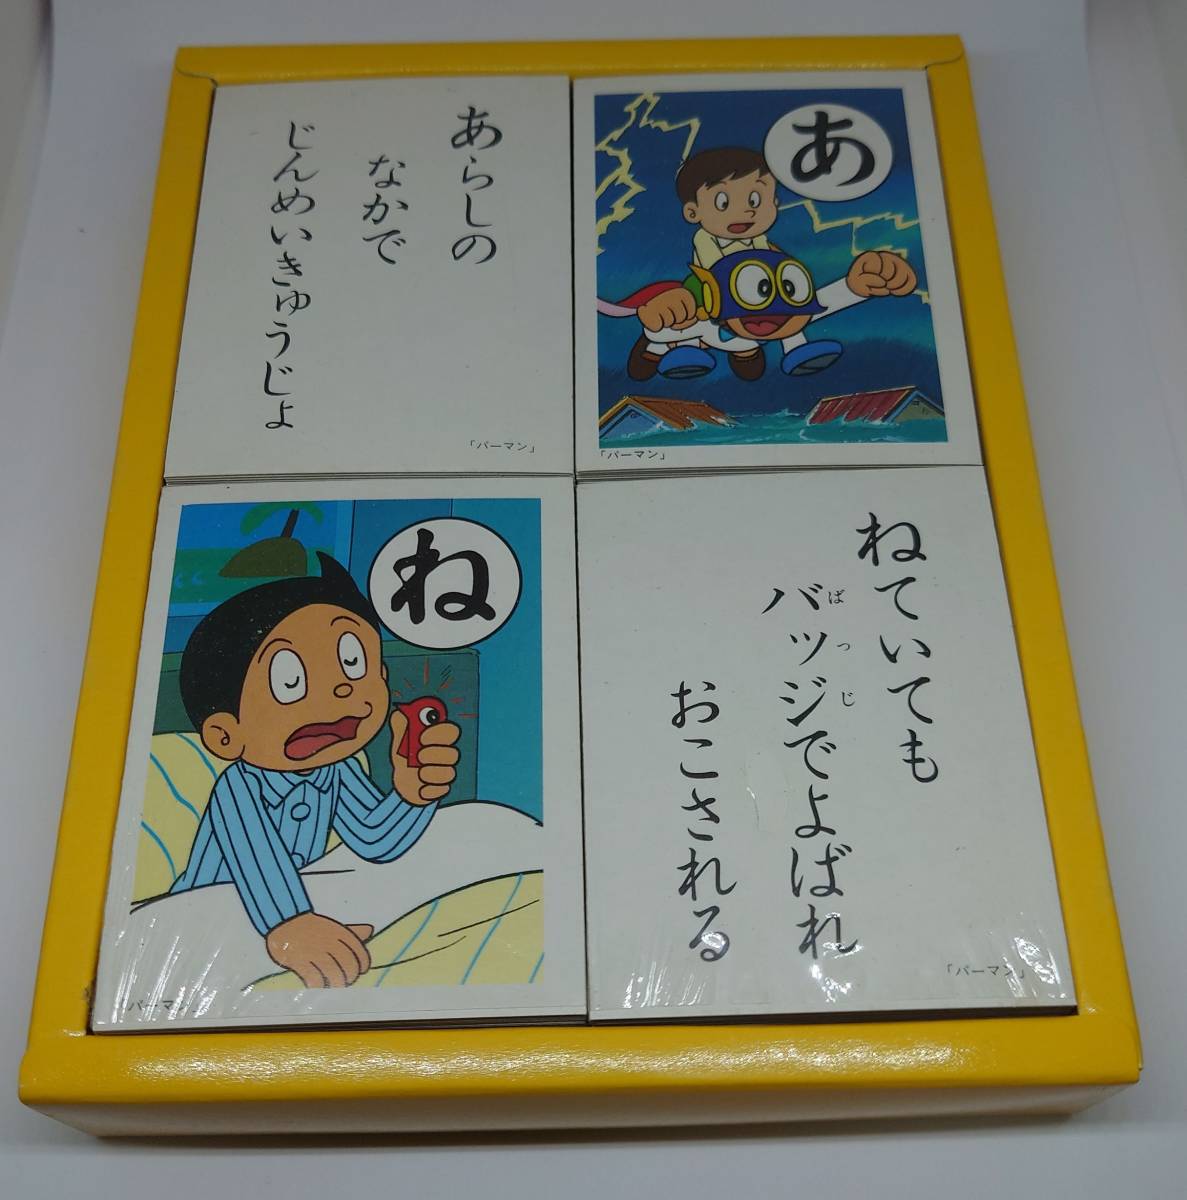 あらしの
なかで
じんめいきゅうじょ
「パーマン」
あ
「パーマン」
ね
「パーマン」
ねていても
バッジでよばれ
ばつじ
おこされる
「パーマン」